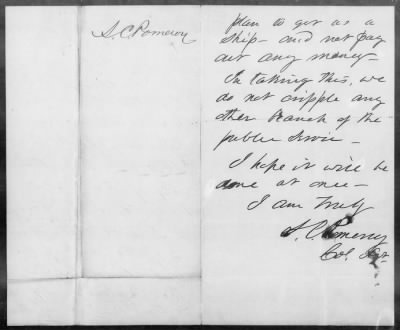 S. C. Pomeroy
plan to get us a
ship — and not pay
out any money —
In taking this, we
do not cripple any
other branch of the
public service —
I hope it will be
done at once —
I am Truly
S. C. Pomeroy
Col.